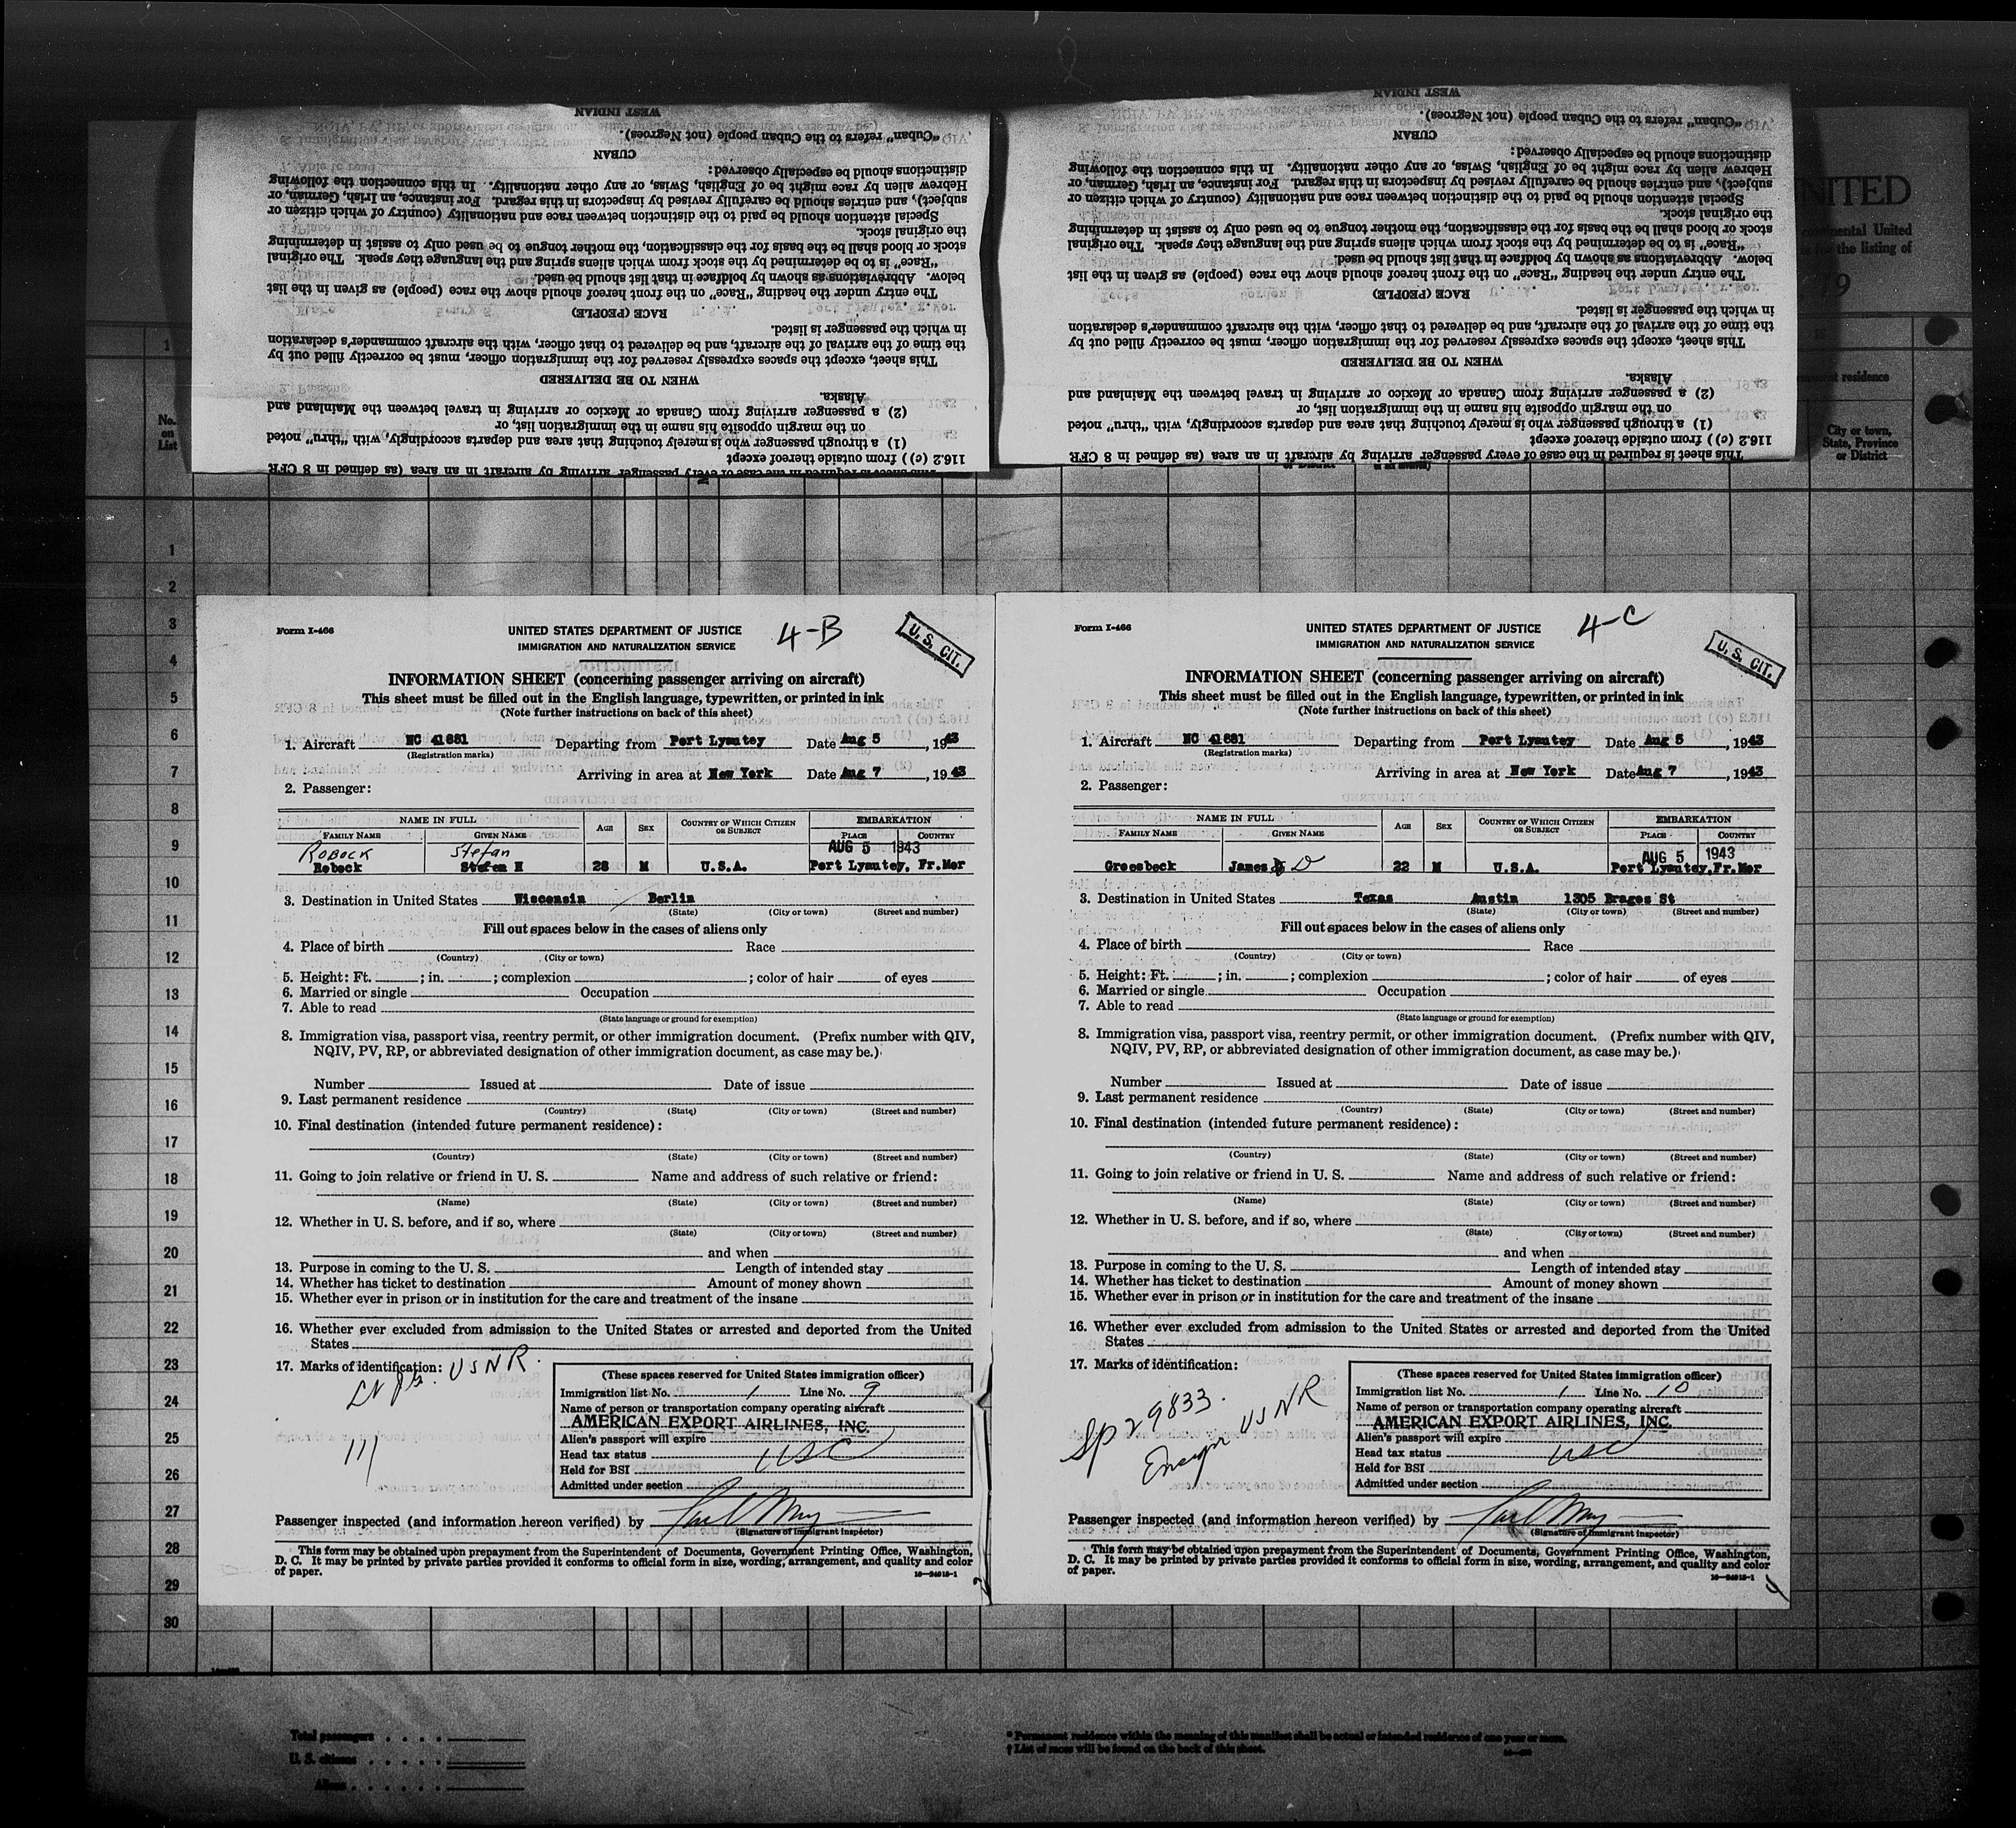 WEST INDIAN
"Cuban" refers to the Cuban people (not Negroes).
CUBAN
distinctions should be especially observed:
Hebrew alien by race might be of English, Swiss, or any other nationality. In this connection the following
subject), and entries should be carefully revised by inspectors in this regard. For instance, an Irish, German, or
Special attention should be paid to the distinction between race and nationality (country of which citizen or
the original stock.
stock or blood shall be the basis for the classification, the mother tongue to be used only to assist in determining
"Race" is to be determined by the stock from which aliens spring and the language they speak. The original
below. Abbreviations as shown by boldface in that list should be used.
The entry under the heading "Race" on the front hereof should show the race (people) as given in the list
RACE (PEOPLE)
in which the passenger is listed.
the time of the arrival of the aircraft, and be delivered to that officer, with the aircraft commander's declaration
This sheet, except the spaces expressly reserved for the immigration officer, must be correctly filled out by
WHEN TO BE DELIVERED
Alaska.
(2) a passenger arriving from Canada or Mexico or arriving in travel between the Mainland and
on the margin opposite his name in the immigration list, or
(1) a through passenger who is merely touching that area and departs accordingly, with "thru" noted
116.2 (c)) from outside thereof except
This sheet is required in the case of every passenger arriving by aircraft in an area (as defined in 8 CFR
WEST INDIAN
"Cuban" refers to the Cuban people (not Negroes).
CUBAN
distinctions should be especially observed:
Hebrew alien by race might be of English, Swiss, or any other nationality. In this connection the following
subject), and entries should be carefully revised by inspectors in this regard. For instance, an Irish, German, or
Special attention should be paid to the distinction between race and nationality (country of which citizen or
the original stock.
stock or blood shall be the basis for the classification, the mother tongue to be used only to assist in determining
"Race" is to be determined by the stock from which aliens spring and the language they speak. The original
below. Abbreviations as shown by boldface in that list should be used.
The entry under the heading "Race" on the front hereof should show the race (people) as given in the list
RACE (PEOPLE)
in which the passenger is listed.
the time of the arrival of the aircraft, and be delivered to that officer, with the aircraft commander's declaration
This sheet, except the spaces expressly reserved for the immigration officer, must be correctly filled out by
WHEN TO BE DELIVERED
Alaska.
(2) a passenger arriving from Canada or Mexico or arriving in travel between the Mainland and
on the margin opposite his name in the immigration list, or
(1) a through passenger who is merely touching that area and departs accordingly, with "thru" noted
116.2 (c)) from outside thereof except
This sheet is required in the case of every passenger arriving by aircraft in an area (as defined in 8 CFR
the listing of
residence
City or town,
State, Province
or District
No.
on
List
1
2
3
4
5
6
7
8
9
10
11
12
13
14
15
16
17
18
19
20
21
22
23
24
25
26
27
28
29
30
Form I-466
UNITED STATES DEPARTMENT OF JUSTICE
4-B
U. S. CIT.
IMMIGRATION AND NATURALIZATION SERVICE
INFORMATION SHEET (concerning passenger arriving on aircraft)
This sheet must be filled out in the English language, typewritten, or printed in ink
(Note further instructions on back of this sheet)
1. Aircraft NC 41881 Departing from Port Lyautey Date Aug 5, 1943
(Registration marks)
Arriving in area at New York Date Aug 7, 1943
2. Passenger:
NAME IN FULL AGE SEX COUNTRY OF WHICH CITIZEN OR SUBJECT EMBARKATION
FAMILY NAME GIVEN NAME PLACE COUNTRY
ROBOCK Stefan AUG 5 1943
Robock Stefan H 28 M U.S.A. Port Lyautey, Fr.Mor
3. Destination in United States Wisconsin Berlin
(State) (City or town) (Street and number)
Fill out spaces below in the cases of aliens only
4. Place of birth Race
(Country) (City or town)
5. Height: Ft. ; in. ; complexion ; color of hair of eyes
6. Married or single Occupation
7. Able to read
(State language or ground for exemption)
8. Immigration visa, passport visa, reentry permit, or other immigration document. (Prefix number with QIV,
NQIV, PV, RP, or abbreviated designation of other immigration document, as case may be.)
Number Issued at Date of issue
9. Last permanent residence
(Country) (State) (City or town) (Street and number)
10. Final destination (intended future permanent residence):
(Country) (State) (City or town) (Street and number)
11. Going to join relative or friend in U. S. Name and address of such relative or friend:
(Name) (State) (City or town) (Street and number)
12. Whether in U. S. before, and if so, where
(State) (City or town) (Street and number)
and when
13. Purpose in coming to the U. S. Length of intended stay
14. Whether has ticket to destination Amount of money shown
15. Whether ever in prison or in institution for the care and treatment of the insane
16. Whether ever excluded from admission to the United States or arrested and deported from the United
States
17. Marks of identification: USNR.
(These spaces reserved for United States immigration officer)
Immigration list No. 1 Line No. 9
Name of person or transportation company operating aircraft
AMERICAN EXPORT AIRLINES, INC.
Alien's passport will expire
Head tax status USC
Held for BSI
Admitted under section
Passenger inspected (and information hereon verified) by
(Signature of immigrant inspector)
This form may be obtained upon prepayment from the Superintendent of Documents, Government Printing Office, Washington,
D. C. It may be printed by private parties provided it conforms to official form in size, wording, arrangement, and quality and color
of paper.
Form I-466
UNITED STATES DEPARTMENT OF JUSTICE
4-C
U. S. CIT.
IMMIGRATION AND NATURALIZATION SERVICE
INFORMATION SHEET (concerning passenger arriving on aircraft)
This sheet must be filled out in the English language, typewritten, or printed in ink
(Note further instructions on back of this sheet)
1. Aircraft NC 41881 Departing from Port Lyautey Date Aug 5, 1943
(Registration marks)
Arriving in area at New York Date Aug 7, 1943
2. Passenger:
NAME IN FULL AGE SEX COUNTRY OF WHICH CITIZEN OR SUBJECT EMBARKATION
FAMILY NAME GIVEN NAME PLACE COUNTRY
AUG 5 1943
Groesbeck James D 22 M U.S.A. Port Lyautey, Fr.Mor
3. Destination in United States Texas Austin 1305 Brages St
(State) (City or town) (Street and number)
Fill out spaces below in the cases of aliens only
4. Place of birth Race
(Country) (City or town)
5. Height: Ft. ; in. ; complexion ; color of hair of eyes
6. Married or single Occupation
7. Able to read
(State language or ground for exemption)
8. Immigration visa, passport visa, reentry permit, or other immigration document. (Prefix number with QIV,
NQIV, PV, RP, or abbreviated designation of other immigration document, as case may be.)
Number Issued at Date of issue
9. Last permanent residence
(Country) (State) (City or town) (Street and number)
10. Final destination (intended future permanent residence):
(Country) (State) (City or town) (Street and number)
11. Going to join relative or friend in U. S. Name and address of such relative or friend:
(Name) (State) (City or town) (Street and number)
12. Whether in U. S. before, and if so, where
(State) (City or town) (Street and number)
and when
13. Purpose in coming to the U. S. Length of intended stay
14. Whether has ticket to destination Amount of money shown
15. Whether ever in prison or in institution for the care and treatment of the insane
16. Whether ever excluded from admission to the United States or arrested and deported from the United
States
17. Marks of identification:
SP 29833.
Ensign USNR
(These spaces reserved for United States immigration officer)
Immigration list No. 1 Line No. 10
Name of person or transportation company operating aircraft
AMERICAN EXPORT AIRLINES, INC.
Alien's passport will expire
Head tax status USC
Held for BSI
Admitted under section
Passenger inspected (and information hereon verified) by
(Signature of immigrant inspector)
This form may be obtained upon prepayment from the Superintendent of Documents, Government Printing Office, Washington,
D. C. It may be printed by private parties provided it conforms to official form in size, wording, arrangement, and quality and color
of paper.
Total passengers
U. S. citizens
Aliens
* Permanent residence within the meaning of this manifest shall be actual or intended residence of one year or more.
† List of races will be found on the back of this sheet.